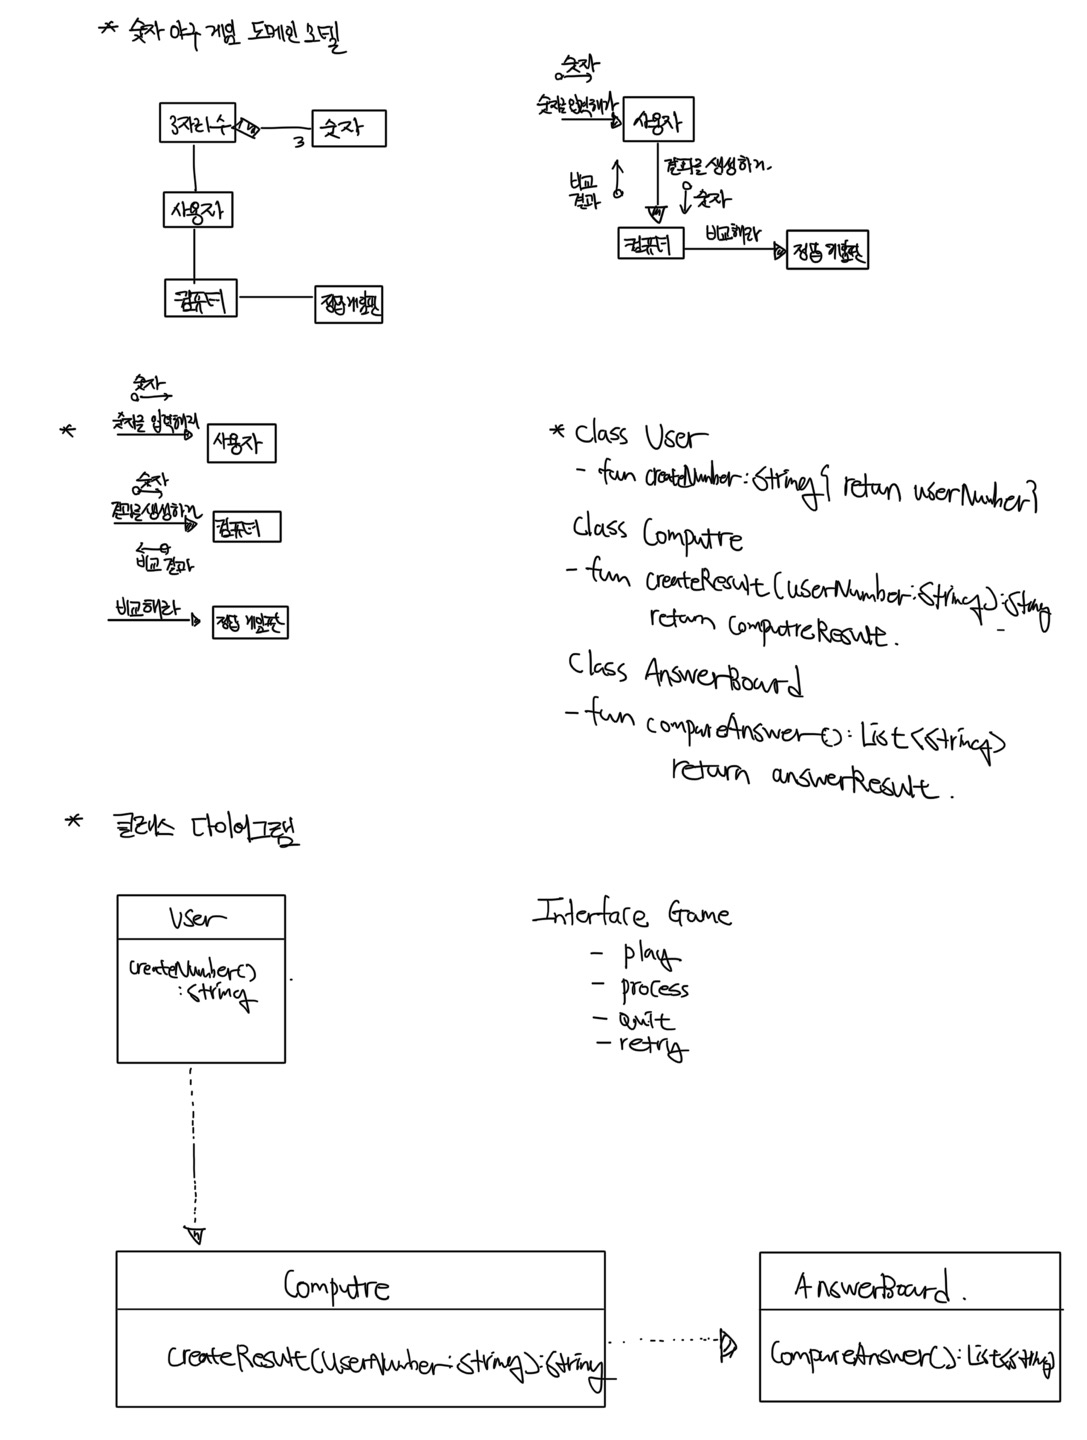 * 숫자 야구 게임 도메인 모델
3자리 수
3
숫자
사용자
컴퓨터
정답 게임판
숫자
숫자를 입력해라
사용자
비교
결과
결과를 생성하라
숫자
컴퓨터
비교해라
정답 게임판
*
숫자
숫자를 입력해라
사용자
숫자
결과를 생성하라
컴퓨터
비교 결과
비교해라
정답 게임판
* Class User
- fun createNumber : String { retun userNumber }
Class Computre
- fun createResult (userNumber : String) : String
return computreResult.
Class AnswerBoard
- fun compareAnswer () : List<String>
return answerResult.
* 클래스 다이어그램
User
createNumber()
: String
Interface Game
- play
- process
- quit
- retry
Computre
createResult(userNumber : String) : String
AnswerBoard.
CompareAnswer() : List<String>